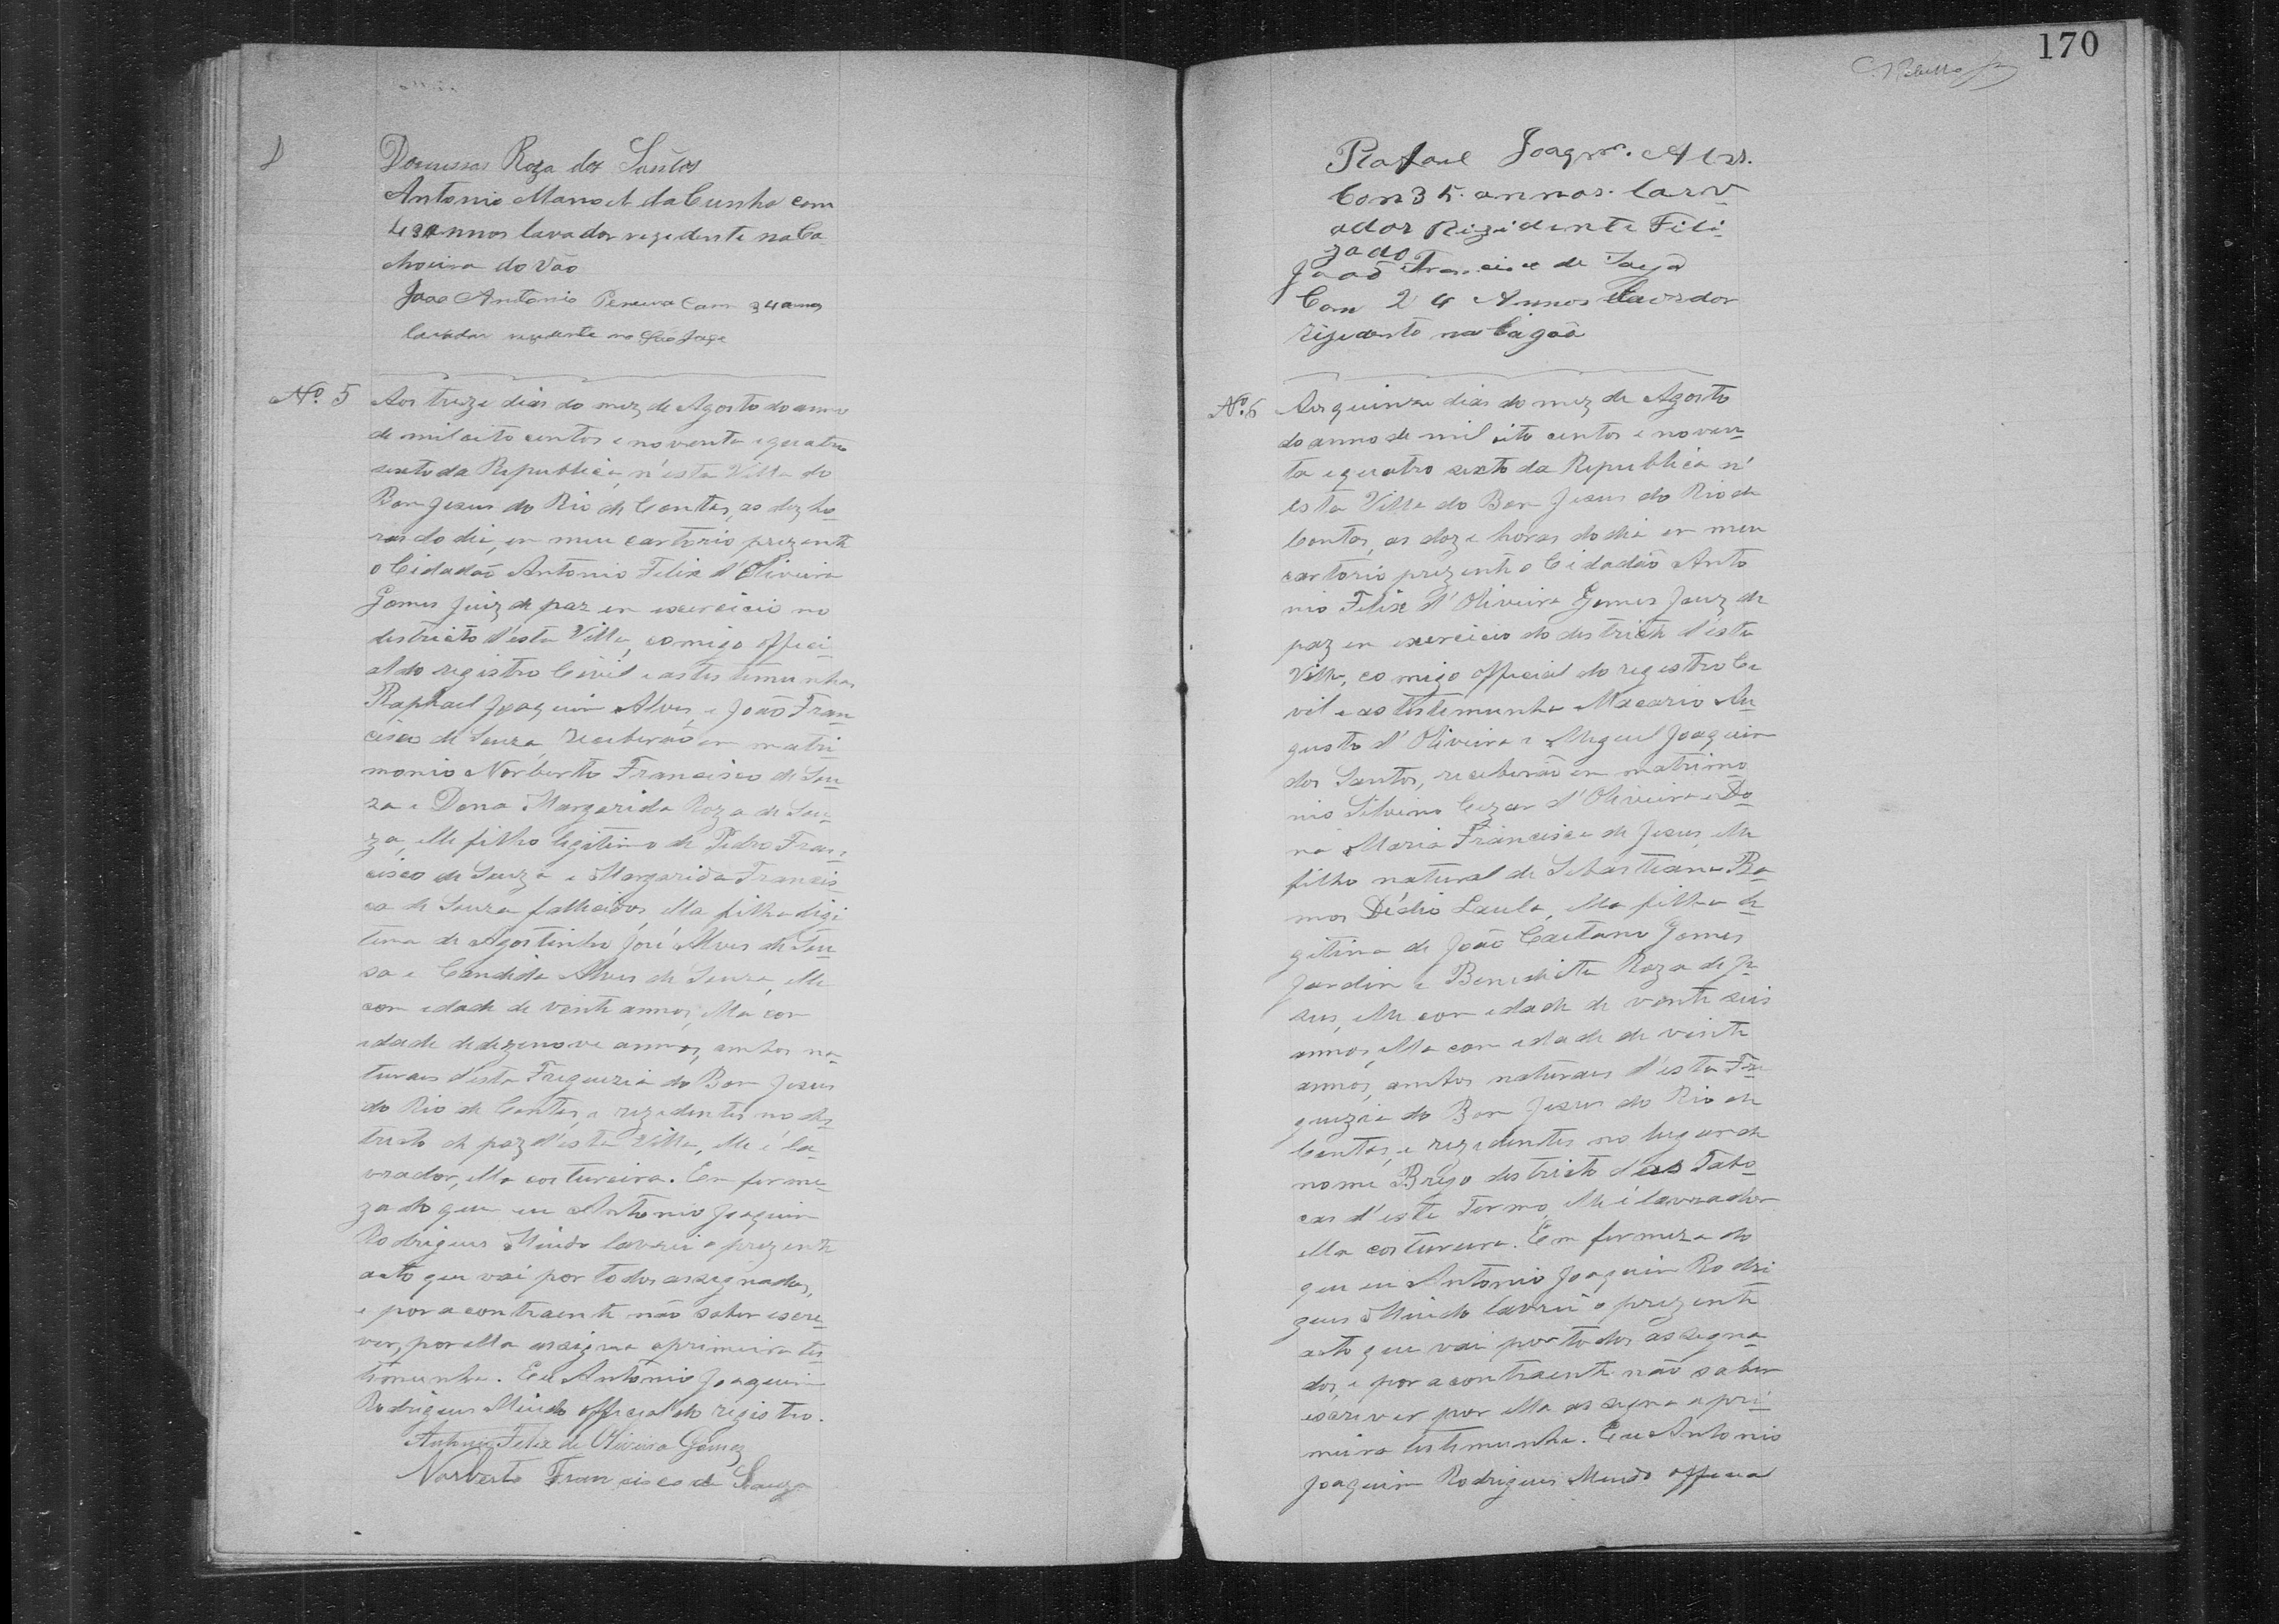 Roza dos Santos
Antonio Manoel da Cunha com
annos lavador rezidente na Ca
choeira do Vão
João Antonio Pereira Com 34 annos
lavador rezidente no
Nº 5 Aos treze dias do mez de Agosto do anno
de mil oito centos e noventa e quatro
sexto da Republica, n'esta Villa do
Bom Jesus do Rio de Contas, as dez ho-
ras do dia, em meu cartorio prezente
o Cidadão Antonio Felix d'Oliveira
Gomes Juiz de paz em exercicio no
destricto d'esta Villa, comigo offici-
al do registro Civil e as testimunhas
Raphael Joaquim Alves, e João Fran-
cisco de Souza, receberão em matri-
monio Norberto Francisco de Sou-
za e Dona Margarida Roza de Sou-
za, elle filho legitimo de Pedro Fran-
cisco de Souza e Margarida Francis-
ca de Souza fallecidos, ella filha ligi
tima de Agostinho José Alves de Sou-
sa e Candida Alves de Souza, elle
com edade de vinte annos, ella com
edade de dezenove annos, ambos na-
turaes d'esta Freguezia do Bom Jesus
do Rio de Contas, e rezidentes no des-
tricto de paz d'esta Villa, elle é la-
vrador, ella costureira. Em firme-
za do que eu Antonio Joaquim
Rodrigues lavrei o prezente
acto que vai por todos assegnados,
e por a contraente não saber escre-
ver, por ella assigna a primeira tes-
timunha. Eu Antonio Joaquim
Rodrigues official do registro.
Antonio Felix de Oliveira Gomez
Norberto Francisco de Souza
170
Rafael Joaqm. Alz.
Com 35. annos. larv
ador Rizidente Fili
zado
João Francisco de
Com 24 Annos Lavrador
rizidente na Lagoa
Nº 6 Aos quinze dias do mez de Agosto
do anno de mil oito centos e noven-
ta e quatro sexto da Republica n'
esta Villa do Bom Jesus do Rio de
Contas, as doze horas do dia em meu
cartorio prezente o Cidadão Anto
nio Felix d'Oliveira Gomes Juiz de
paz em exercicio do destricto d'esta
Villa, comigo official do registro Ci
vil e as testimunha Macario Au-
gusto d'Oliveira e Miguel Joaquim
dos Santos, receberão em matrimo-
nio Silvino Cezar d'Oliveira e Do-
na Maria Francisca de Jesus, elle
filho natural de Sebastiana Ra-
mos ella filha le-
gitima de João Caetano Gomes
Jardim e Benedicta Roza de Je-
sus, elle com edade de vinte seis
annos, ella com edade de vinte
annos, ambos naturaes d'esta Fre-
guezia do Bom Jesus do Rio de
Contas, e rezidentes no lugar de
nome Brejo destricto d'as Tabo-
cas d'este Termo, elle é lavrador
ella costureira. Em firmeza do
que eu Antonio Joaquim Rodri-
gues lavrei o prezente
acto que vai por todos assegna-
dos, e por a contraente não saber
escriver por ella assegna a pri-
meira testimunha. Eu Antonio
Joaquim Rodrigues official